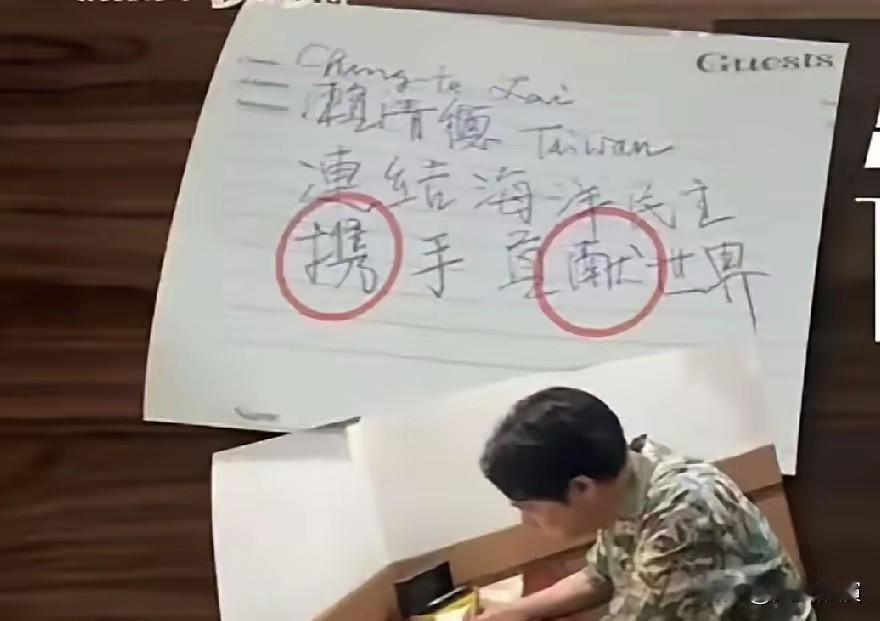 Guests
Ching-te Lai
賴清德 Taiwan
連結海洋民主
携手貢献世界